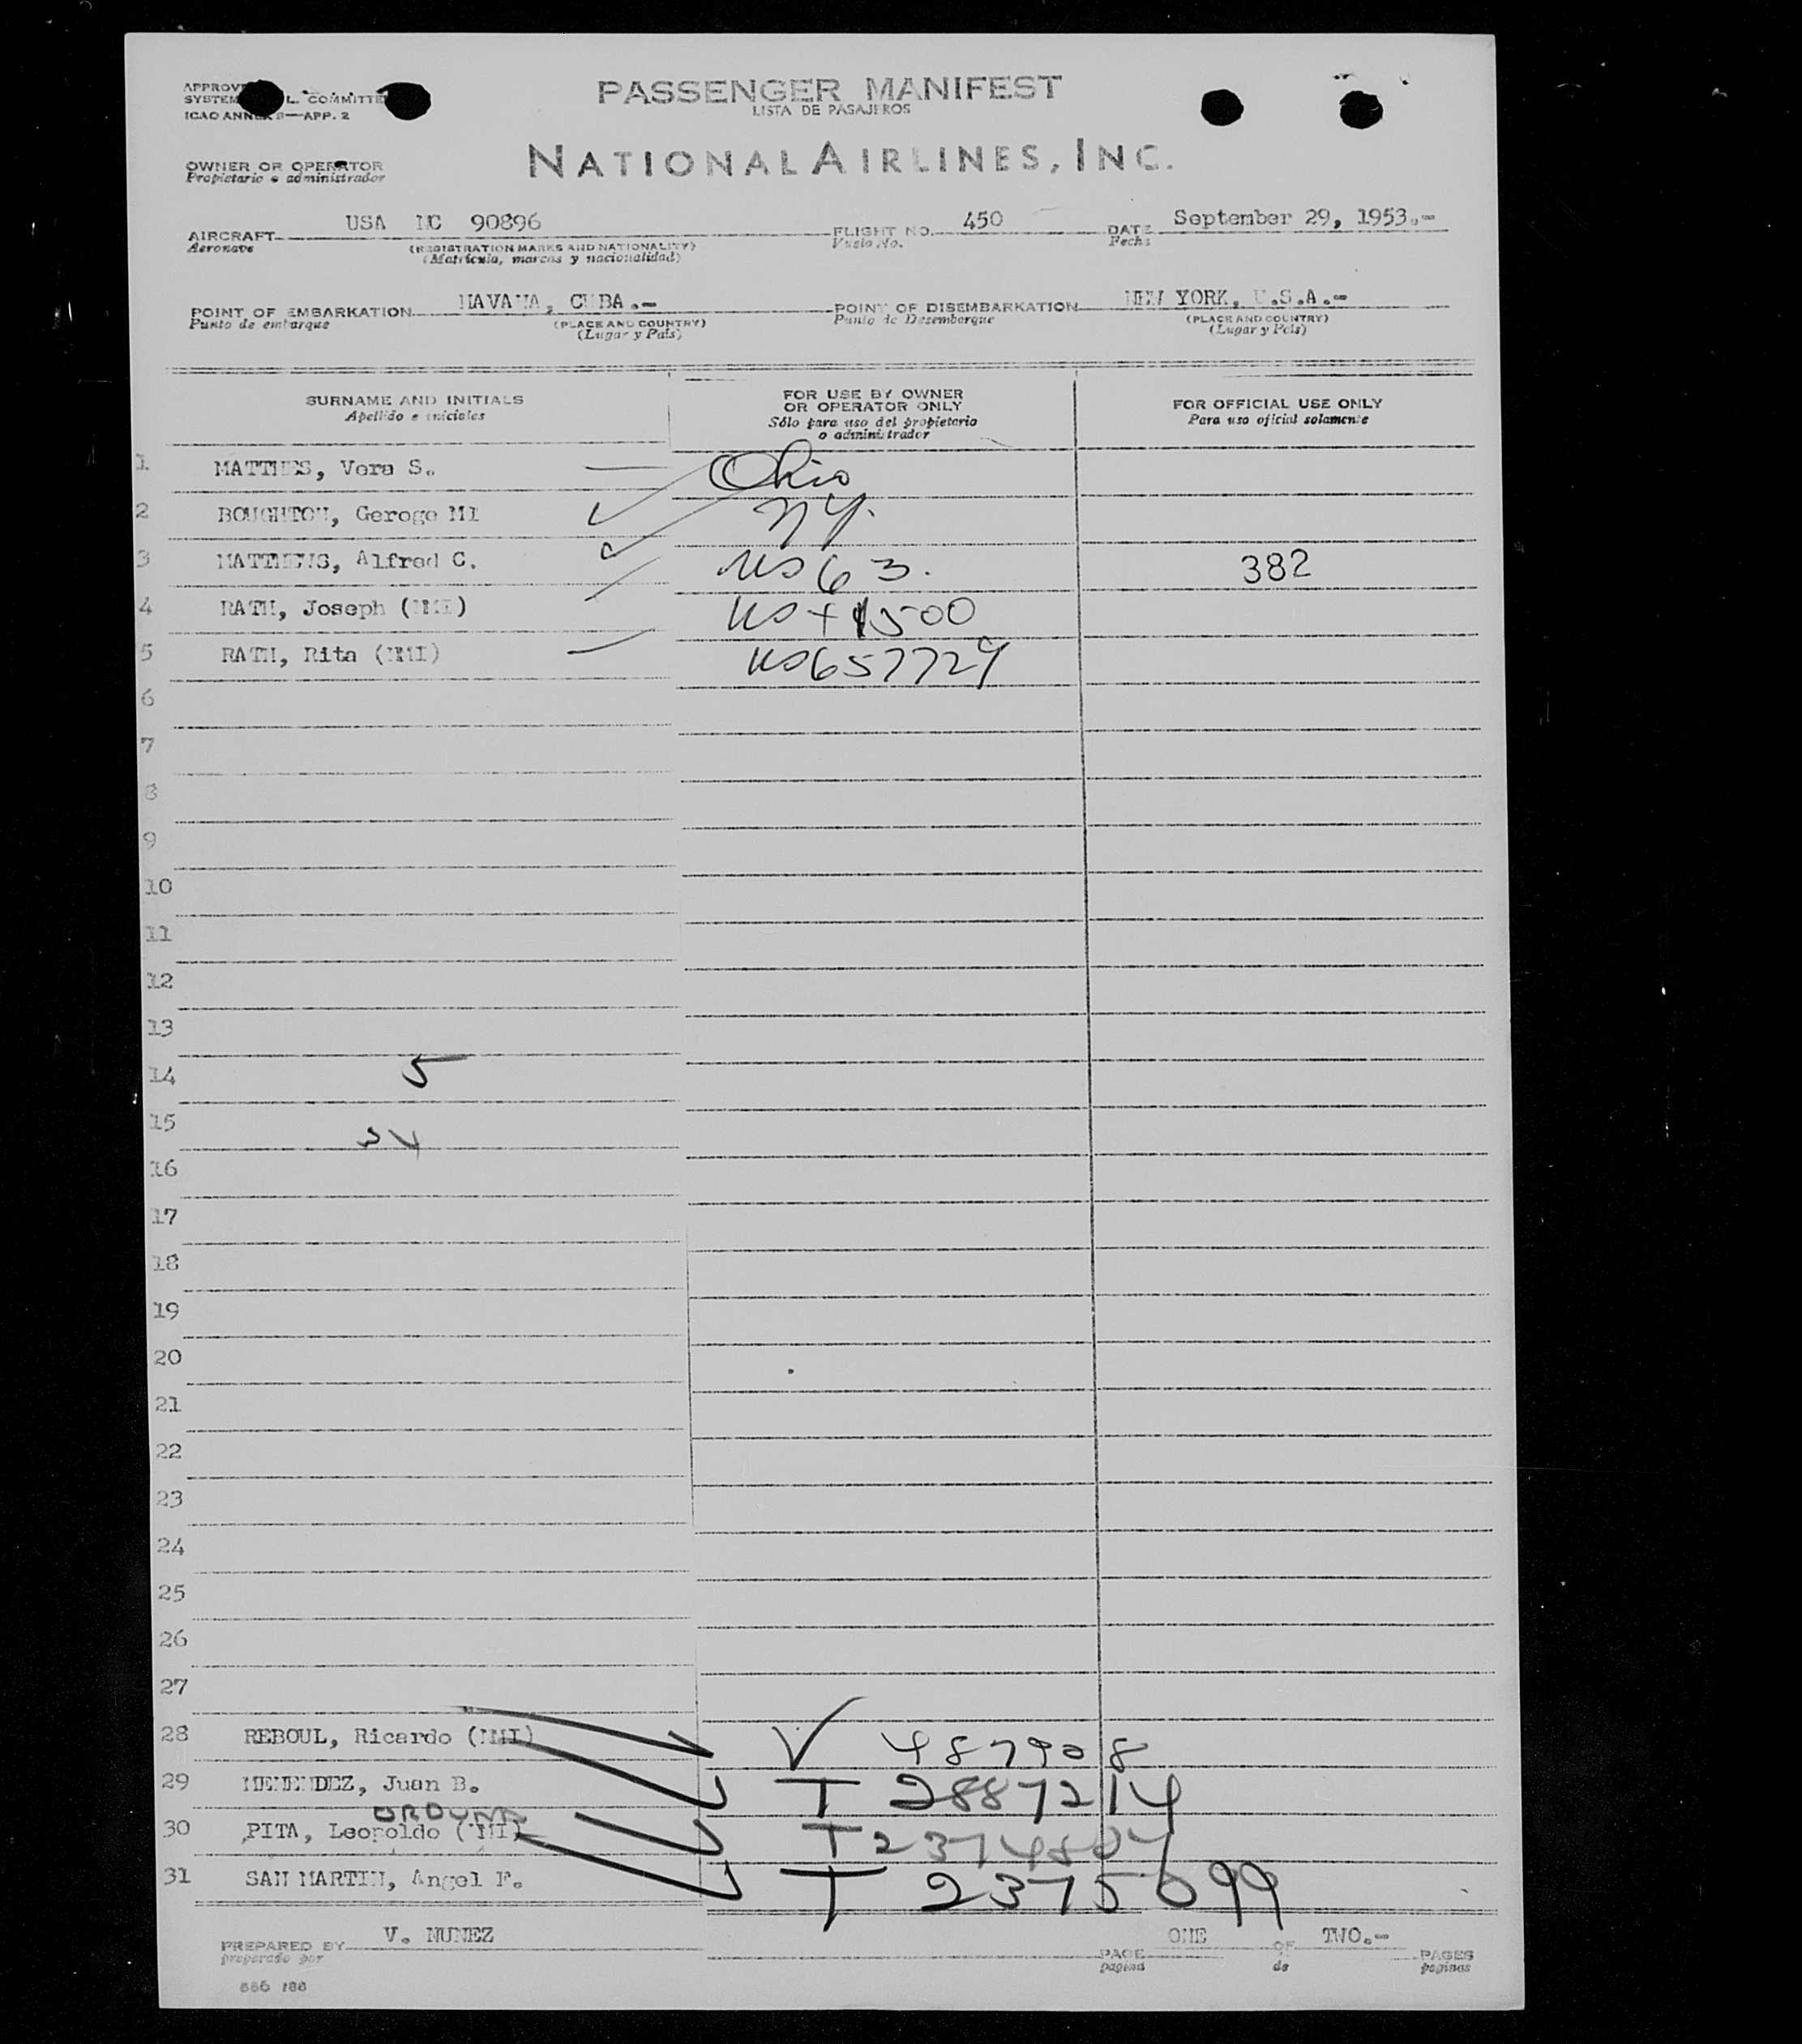 PASSENGER MANIFEST
LISTA DE PASAJEROS
ICAO ANNEX 9—APP. 2
OWNER OR OPERATOR
Propietario o administrador
NATIONAL AIRLINES, INC.
AIRCRAFT USA NC 90896 FLIGHT NO. 450 DATE September 29, 1953.-
Aeronave (REGISTRATION MARKS AND NATIONALITY) Vuelo No. Fecha
(Matrícula, marcas y nacionalidad)
POINT OF EMBARKATION HAVANA, CUBA.- POINT OF DISEMBARKATION NEW YORK, U.S.A.-
Punto de embarque (PLACE AND COUNTRY) Punto de Desembarque (PLACE AND COUNTRY)
(Lugar y País) (Lugar y País)
SURNAME AND INITIALS FOR USE BY OWNER OR OPERATOR ONLY FOR OFFICIAL USE ONLY
Apellido e iniciales Sólo para uso del propietario o administrador Para uso oficial solamente
1 MATTHES, Vera S. Ohio
2 BOUGHTON, Geroge MI NY.
3 MATTHEWS, Alfred C. US 63. 382
4 RATH, Joseph (NMI) US + 1500
5 RATH, Rita (NMI) US 657729
6
7
8
9
10
11
12
13
14 5
15
16
17
18
19
20
21
22
23
24
25
26
27
28 REBOUL, Ricardo (NMI) V 487908
29 MENENDEZ, Juan B. T 2887214
30 PITA, Leopoldo (NMI) T 2374804
31 SAN MARTIN, Angel F. T 2375699
PREPARED BY V. NUNEZ PAGE ONE OF TWO.- PAGES
preparado por pagina de paginas